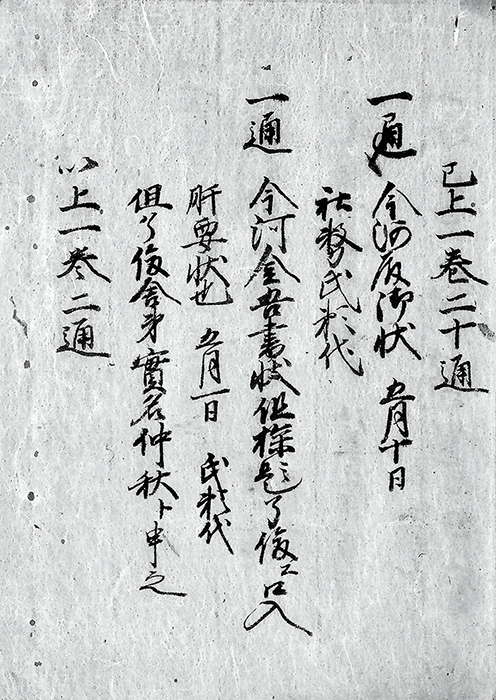 已上一巻二十通
一通 今河殿御状 五月十日
社務氏於代
一通 今河金吾書状但探題了俊エ口入
肝要状也 五月一日 氏於代
但了俊舎弟實名仲秋ト申之
以上一巻二通